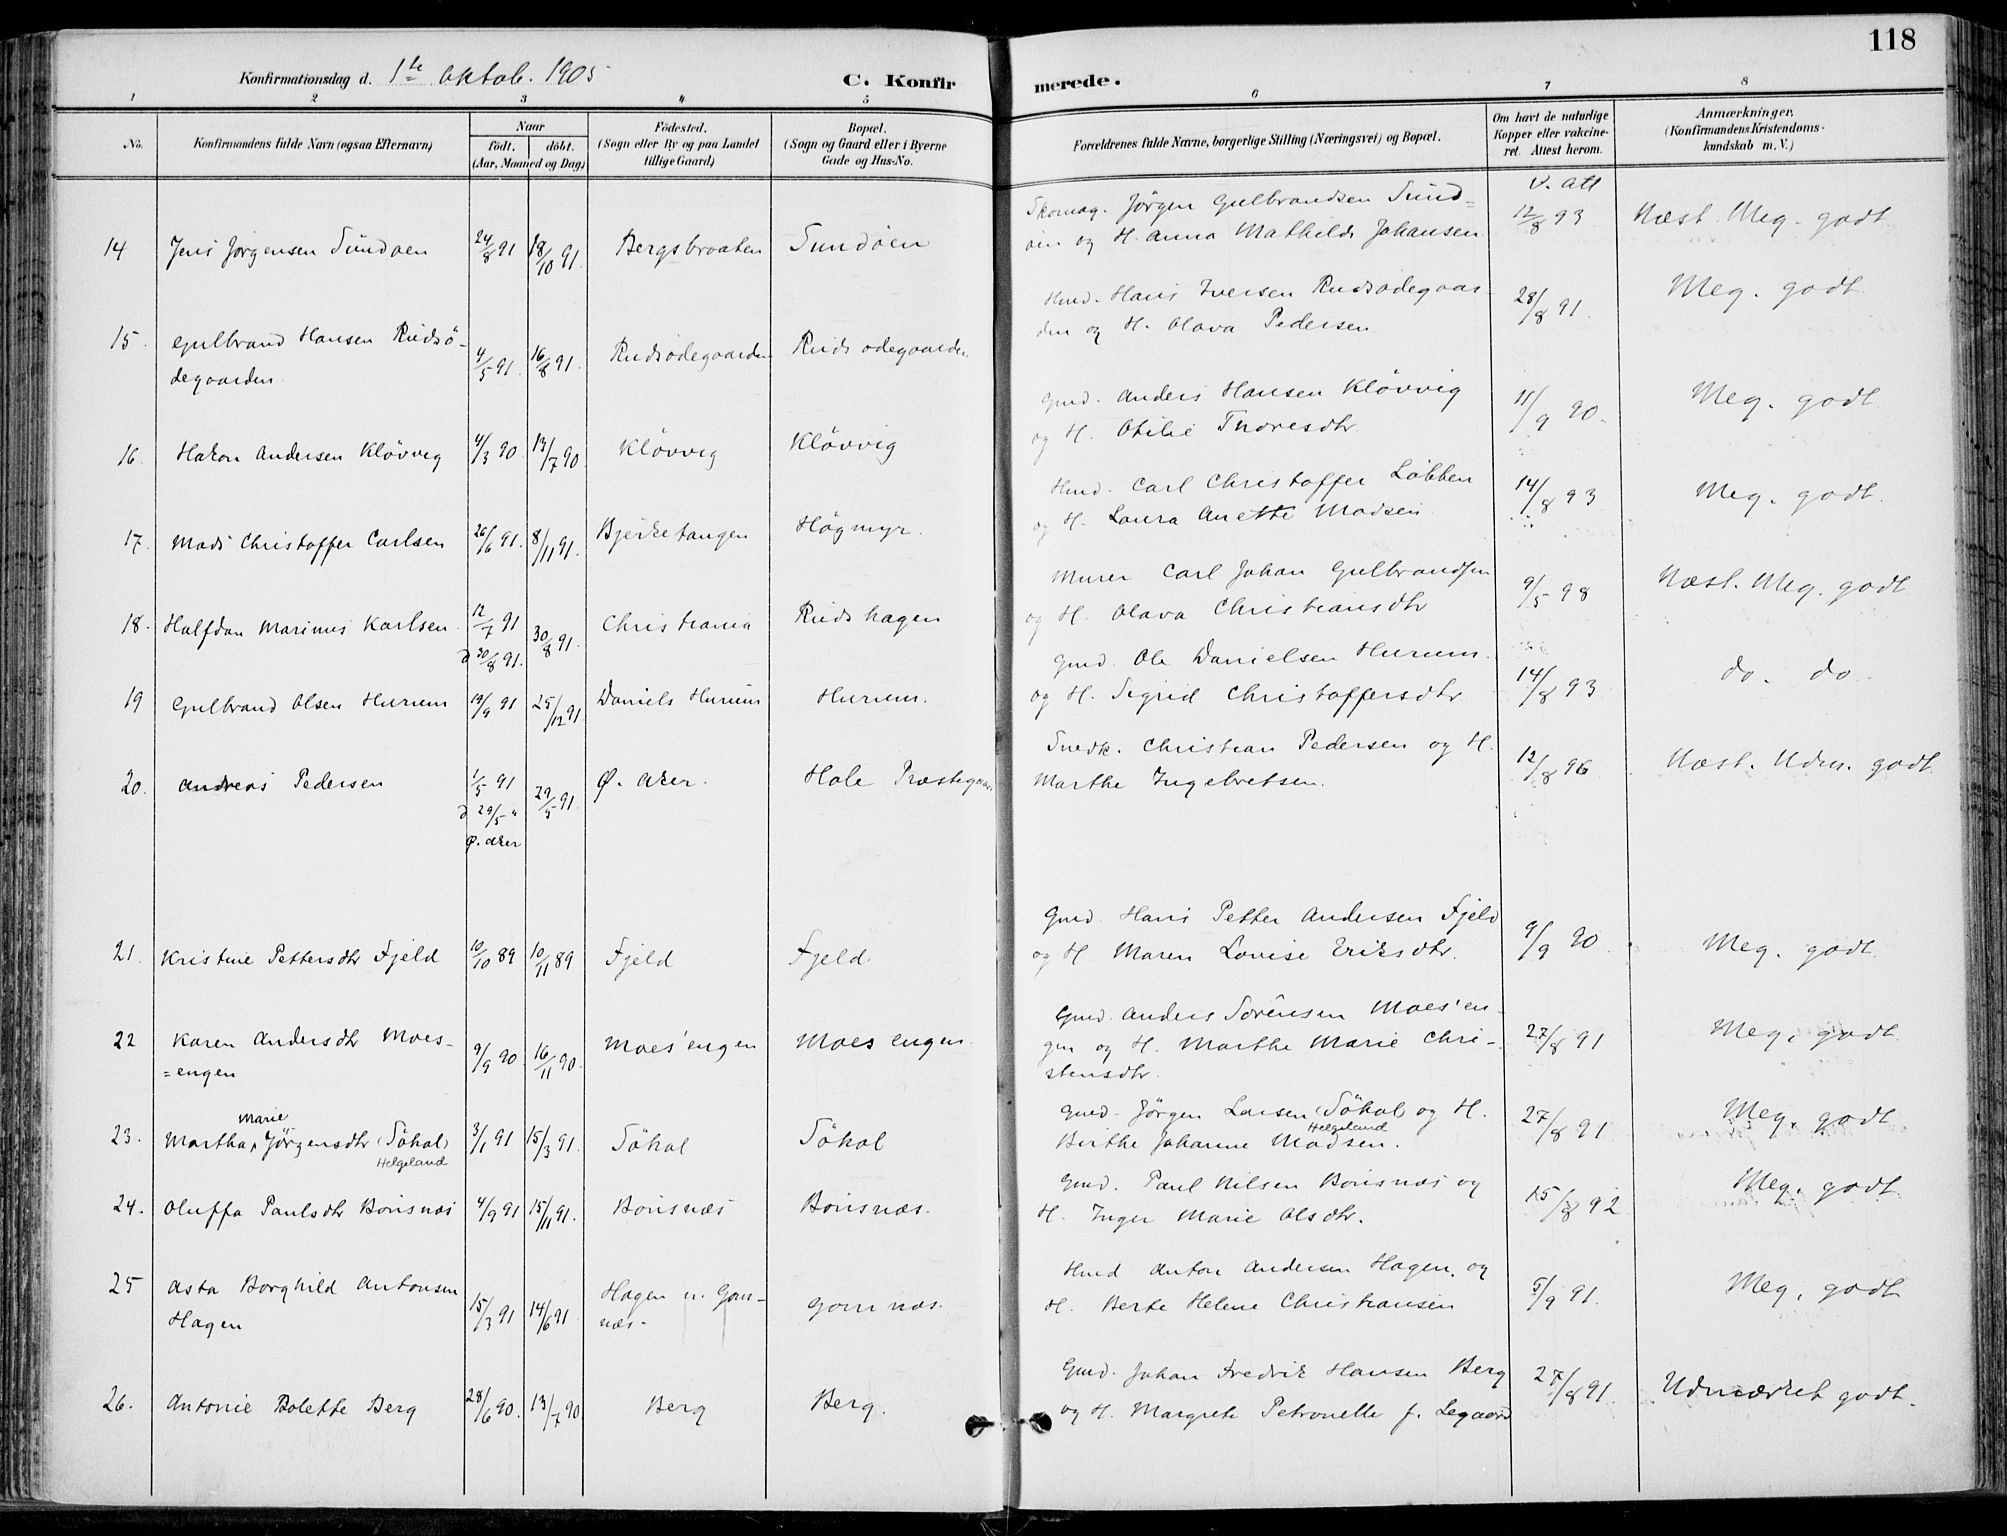 118
Konfirmationsdag d. 1ste Oktob. 1905
C. Konfir merede.
1 2 3 4 5 6 7 8
No.
Konfirmandens fulde Navn (ogsaa Efternavn)
Naar
födt. döbt.
(Aar, Maaned og Dag)
Födested.
(Sogn eller By og paa Landet
tillige Gaard)
Bopæl.
(Sogn og Gaard eller i Byerne
Gade og Hus-No.
Forældrenes fulde Navne, borgerlige Stilling (Næringsvei) og Bopæl.
Om havt de naturlige
Kopper eller vakcine-
ret. Attest herom.
Anmærkninger.
(Konfirmandens Kristendoms-
kundskab m. V.)
14 Jens Jørgensen Sundøen 24/8 91 18/10 91 Bergsbraaten Sundøen
Skomag. Jørgen Gulbrandsen Sund=
øen og H. Anna Mathilde Johansen
v. att
12/8 93 Næst. Meg. godt
15. Gulbrand Hansen Rudsö-
degaarden. 4/5 91. 16/8 91. Rudsödegaarden Ruds ödegaarden
Hmd. Hans Iversen Rudsödegaar-
den og H. Olava Pedersen 28/8 91. Meg. godt
16. Hakon Andersen Kløvvig 4/3 90 13/7 90 Kløvvig Kløvvig
Gmd. Anders Hansen Kløvvig
og H. Otilie Thoresdtr 11/9 90. Meg. godt
17. Mads Christoffer Carlsen 26/6 91. 8/11 91. Bjerketangen Högmyr.
Hmd. Carl Christoffer Løbben
og H. Laura Anette Madsen 14/8 93 Meg. godt.
18. Halfdan Marinus Karlsen 12/7 91 30/8 91. Christiania Rudshagen
d 30/8 91.
Murer Carl Johan Gulbrandsen
og H. Olava Christiansdtr 9/5 98 Næst. Meg. godt
19 Gulbrand Olsen Hurum 19/9 91 25/12 91 Daniels Hurum Hurum.
Gmd. Ole Danielsen Hurum.
og H. Sigrid Christoffersdtr 14/8 93 do. do.
20. Andreas Pedersen 1/5 91 29/5 91. Ø. Aker. Hole Præstegaard
d 29/5 "
Ø. Aker
Snedk. Christian Pedersen og H.
Marthe Ingebretsen. 12/8 96 Næst. Udm. godt
21. Kristine Pettersdtr Fjeld 10/10 89 10/11 89 Fjeld Fjeld
Gmd. Hans Petter Andersen Fjeld
og H. Maren Lovise Eriksdtr. 9/9 90 Meg. godt.
22 Karen Andersdtr Moes-
=engen 9/9 90 16/11 90 Moes'engen Moesengen.
Gmd. Anders Sørensen Moes'en-
gen og H. Marthe Marie Chri-
stensdtr. 27/8 91 Meg. godt.
23. Martha Marie Jørgensdtr (Søhol) 3/1 91 15/3 91. Søhol Søhol
Helgeland
Gmd. Jørgen Larsen (Søhol) og H.
Helgeland
Birthe Johanne Madsen. 27/8 91 Meg. godt
24. Oluffa Paulsdtr Bönsnæs 4/9 91 15/11 91. Bönsnæs Bönsnæs.
Gmd. Paul Nilsen Bönsnæs og
H. Inger Marie Olsdtr. 15/8 92 Meg. godt.
25 Asta Borghild Antonsen
Hagen 15/3 91 14/6 91 Hagen u. Gom-
næs. Gomnæs.
Hmd Anton Andersen Hagen. og
H. Berte Helene Christiansen 5/9 91. Meg. godt
26. Antonie Bolette Berg 28/6 90. 13/7 90 Berg Berg.
Gmd. Johan Fredrik Hansen Berg
og H. Margrete Petronelle f. Legaard 27/8 91. Udmærket godt.